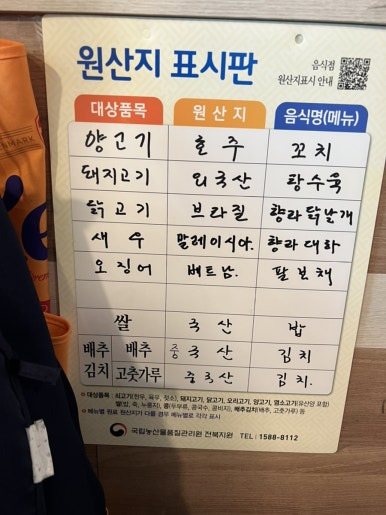 원산지 표시판
음식점
원산지표시 안내
대상품목 원산지 음식명(메뉴)
양고기 호주 꼬치
돼지고기 외국산 탕수육
닭고기 브라질 향라닭날개
새우 말레이시아. 향라대하
오징어 베트남. 팔보채
쌀 국산 밥
배추 배추 중국산 김치
김치 고춧가루 중국산 김치.
대상품목: 쇠고기(한우, 육우, 젖소), 돼지고기, 닭고기, 오리고기, 양고기, 염소고기(유산양 포함)
쌀(밥, 죽, 누룽지), 콩(두부류, 콩국수, 콩비지), 배추김치(배추, 고춧가루) 등
메뉴별 원료 원산지가 다를 경우 메뉴별로 각각 표시
국립농산물품질관리원 전북지원 TEL : 1588-8112